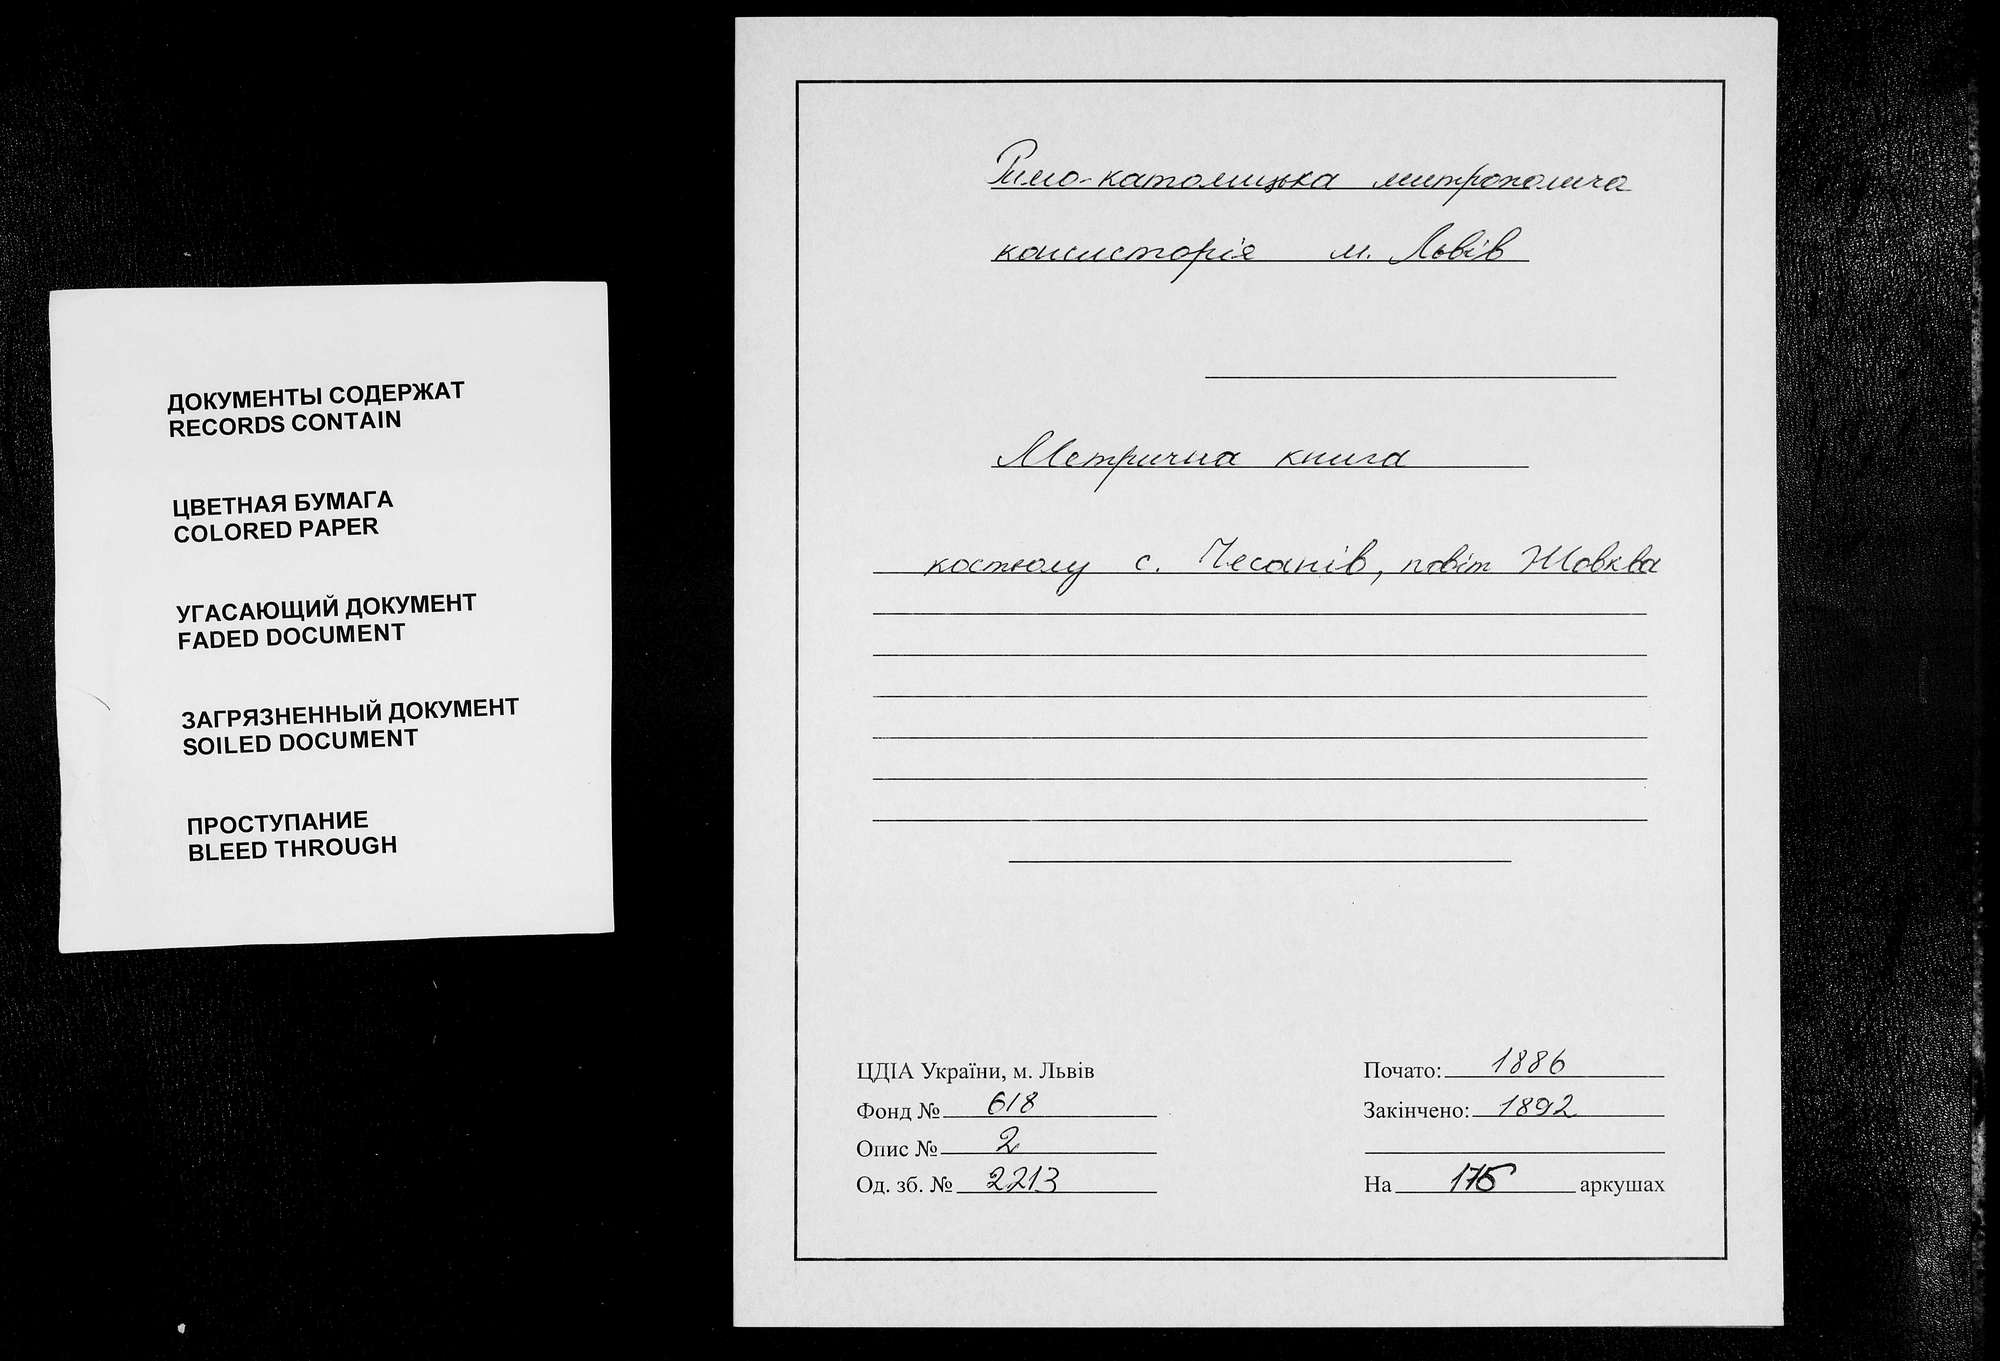 ДОКУМЕНТЫ СОДЕРЖАТ
RECORDS CONTAIN
ЦВЕТНАЯ БУМАГА
COLORED PAPER
УГАСАЮЩИЙ ДОКУМЕНТ
FADED DOCUMENT
ЗАГРЯЗНЕННЫЙ ДОКУМЕНТ
SOILED DOCUMENT
ПРОСТУПАНИЕ
BLEED THROUGH
Римо-католицька митрополича
консисторія м. Львів
Метрична книга
костюлу с. Чесанів, повіт Жовква
ЦДІА України, м. Львів
Фонд № 618
Опис № 2
Од. зб. № 2213
Почато: 1886
Закінчено: 1892
На 175 аркушах